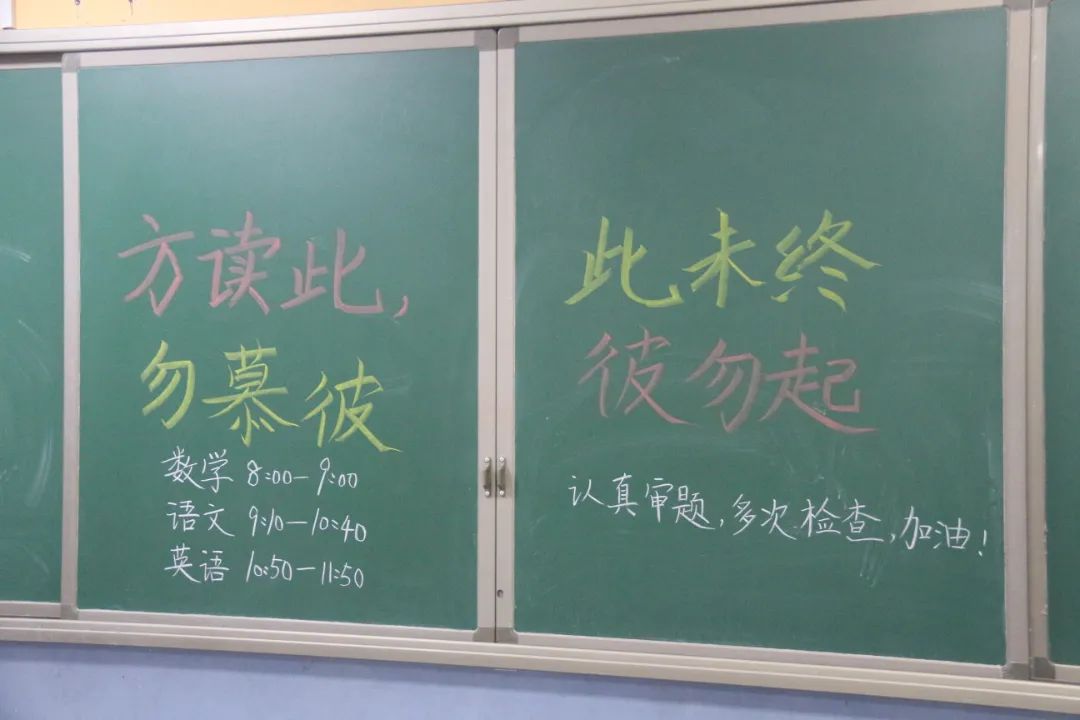 方读此，
勿慕彼
数学 8:00—9:00
语文 9:10—10:40
英语 10:50—11:50
此未终
彼勿起
认真审题，多次检查，加油！